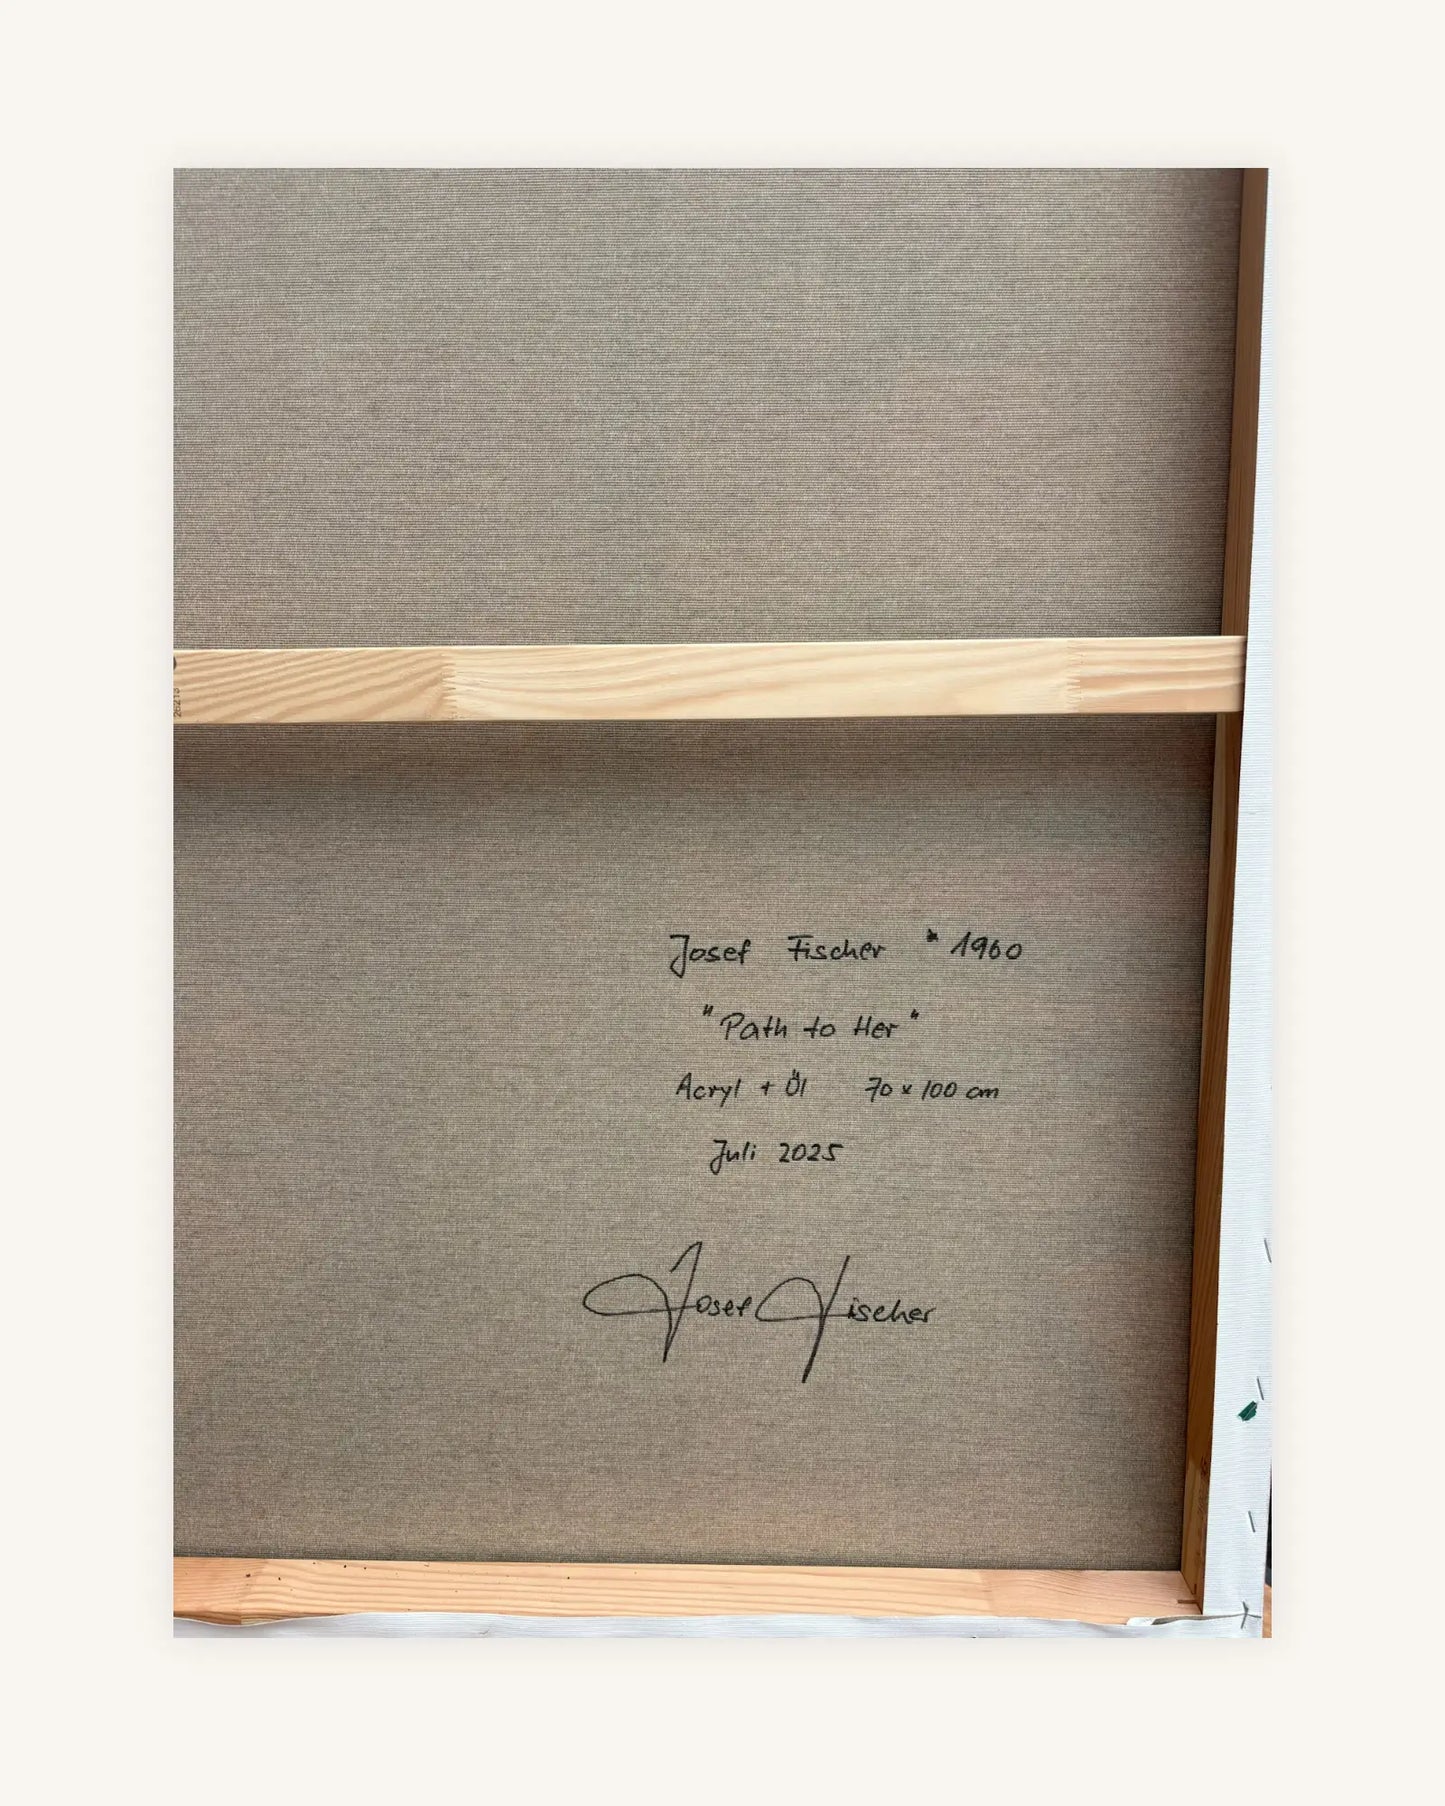 26213
Josef Fischer * 1960
"Path to Her"
Acryl + Öl 70 x 100 cm
Juli 2025
Josef Fischer